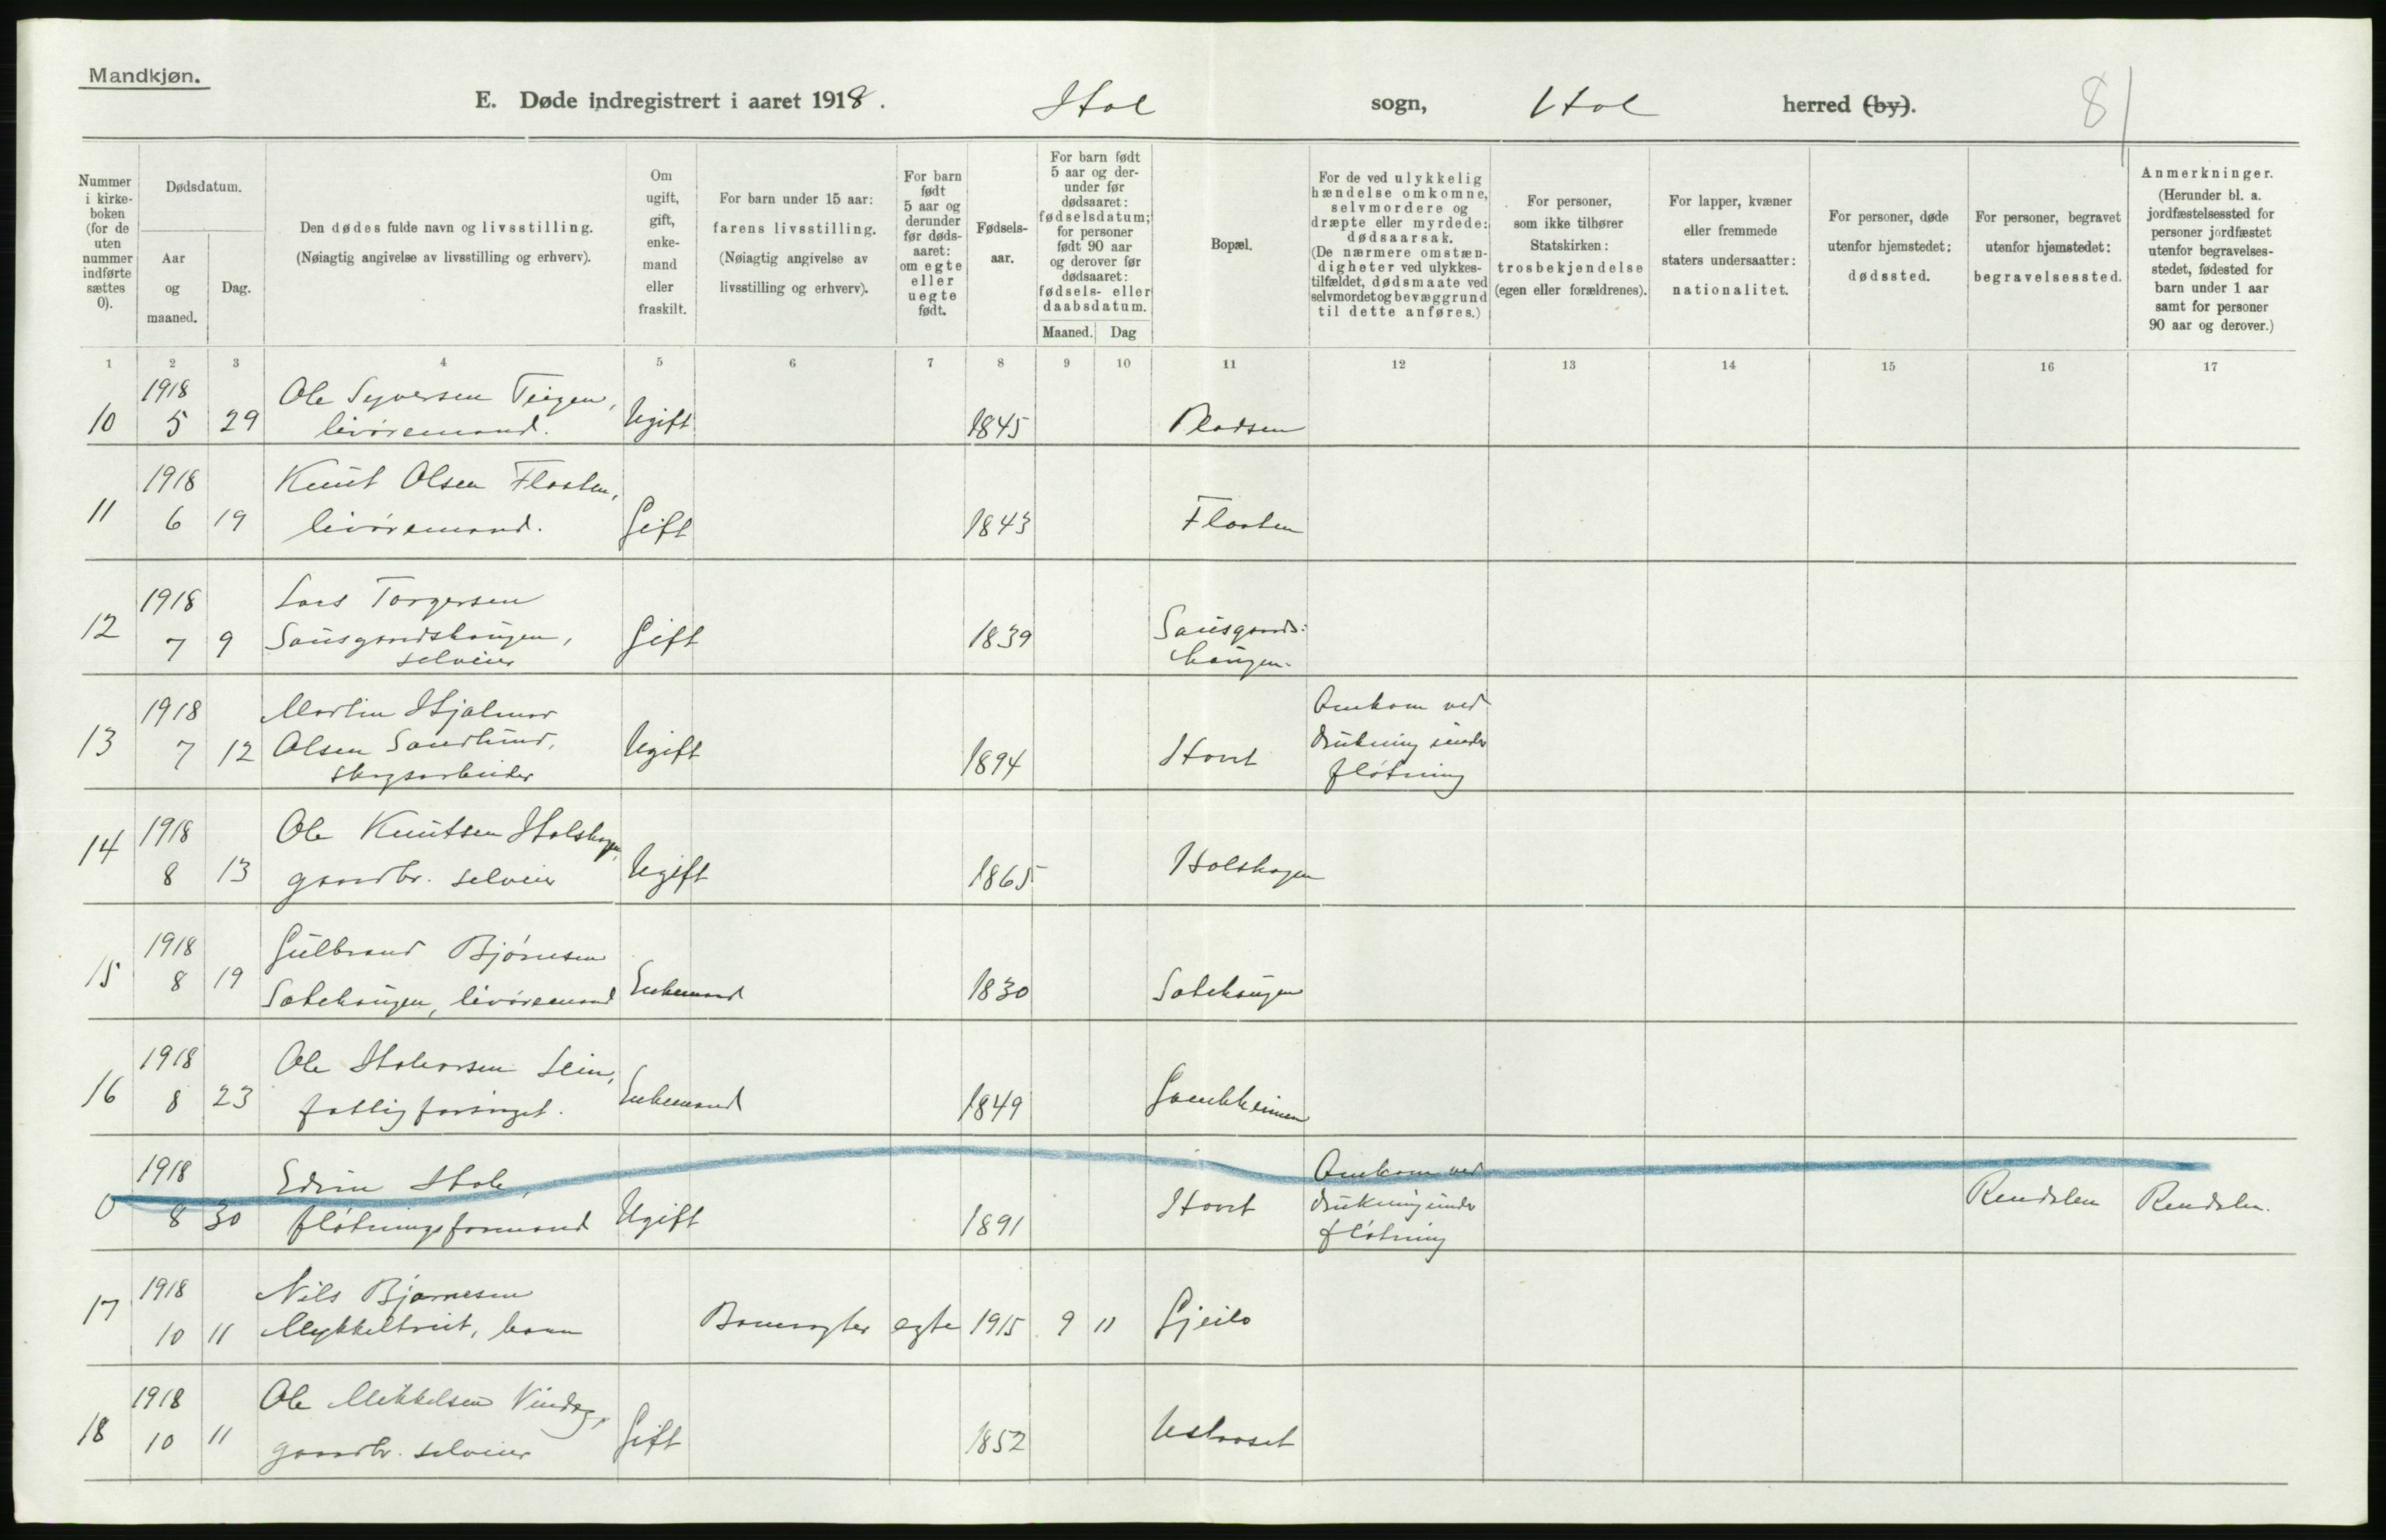 Mandkjøn.
E. Døde indregistrert i aaret 1918. Hol sogn, Hol herred (by). 8
Nummer i kirke-boken (for de uten nummer indførte sættes 0).
Dødsdatum.
Aar og maaned.
Dag.
Den dødes fulde navn og livsstilling.
(Nøiagtig angivelse av livsstilling og erhverv).
Om ugift, gift, enke-mand eller fraskilt.
For barn under 15 aar:
farens livsstilling.
(Nøiagtig angivelse av livsstilling og erhverv).
For barn født 5 aar og derunder før døds-aaret: om egte eller uegte født.
Fødsels-aar.
For barn født 5 aar og der-under før dødsaaret: fødselsdatum; for personer født 90 aar og derover før dødsaaret: fødsels- eller daabsdatum.
Maaned. Dag
Bopæl.
For de ved ulykkelig hændelse omkomne, selvmordere og dræpte eller myrdede: dødsaarsak.
(De nærmere omstæn-digheter ved ulykkes-tilfældet, dødsmaate ved selvmordet og bevæggrund til dette anføres.)
For personer, som ikke tilhører Statskirken: trosbekjendelse (egen eller forældrenes).
For lapper, kvæner eller fremmede staters undersaatter: nationalitet.
For personer, døde utenfor hjemstedet: dødssted.
For personer, begravet utenfor hjemstedet: begravelsessted.
Anmerkninger.
(Herunder bl. a. jordfæstelsessted for personer jordfæstet utenfor begravelses-stedet, fødested for barn under 1 aar samt for personer 90 aar og derover.)
1 2 3 4 5 6 7 8 9 10 11 12 13 14 15 16 17
1918 Ole Syversen Teigen,
10 5 29 livøremand. Ugift 1845 Pladsen
1918 Knut Olsen Flaaten,
11 6 19 livøremand. Gift 1843 Flaaten
1918 Lars Torgersen
12 7 9 Sausgaardshaugen, Gift 1839 Sausgaards-
selveier haugen.
1918 Martin Hjalmar Omkom ved
13 7 12 Olsen Sandlund, Ugift 1894 Hovet drukning under
skogsarbeider fløtning
14 1918 Ole Knutsen Holshagen,
8 13 gaardbr. selveier Ugift 1865 Holshagen
1918 Gulbrand Bjørnsen
15 8 19 Satehaugen, livøremand Enkemand 1830 Satehaugen
1918 Ole Halvorsen Lein,
16 8 23 fattigforsørget. Enkemand 1849 Gamlheimen
1918 Edvin Hole, Omkom ved
0 8 30 fløtningsformand Ugift 1891 Hovet drukning under Rendalen Rendalen.
fløtning
1918 Nils Bjørnesen
17 10 11 Mykkeltveit, barn Banevogter egte 1915 9 11 Gjeilo
1918 Ole Mikkelsen
18 10 11 gaardbr. selveier Gift 1852 Ustaaset